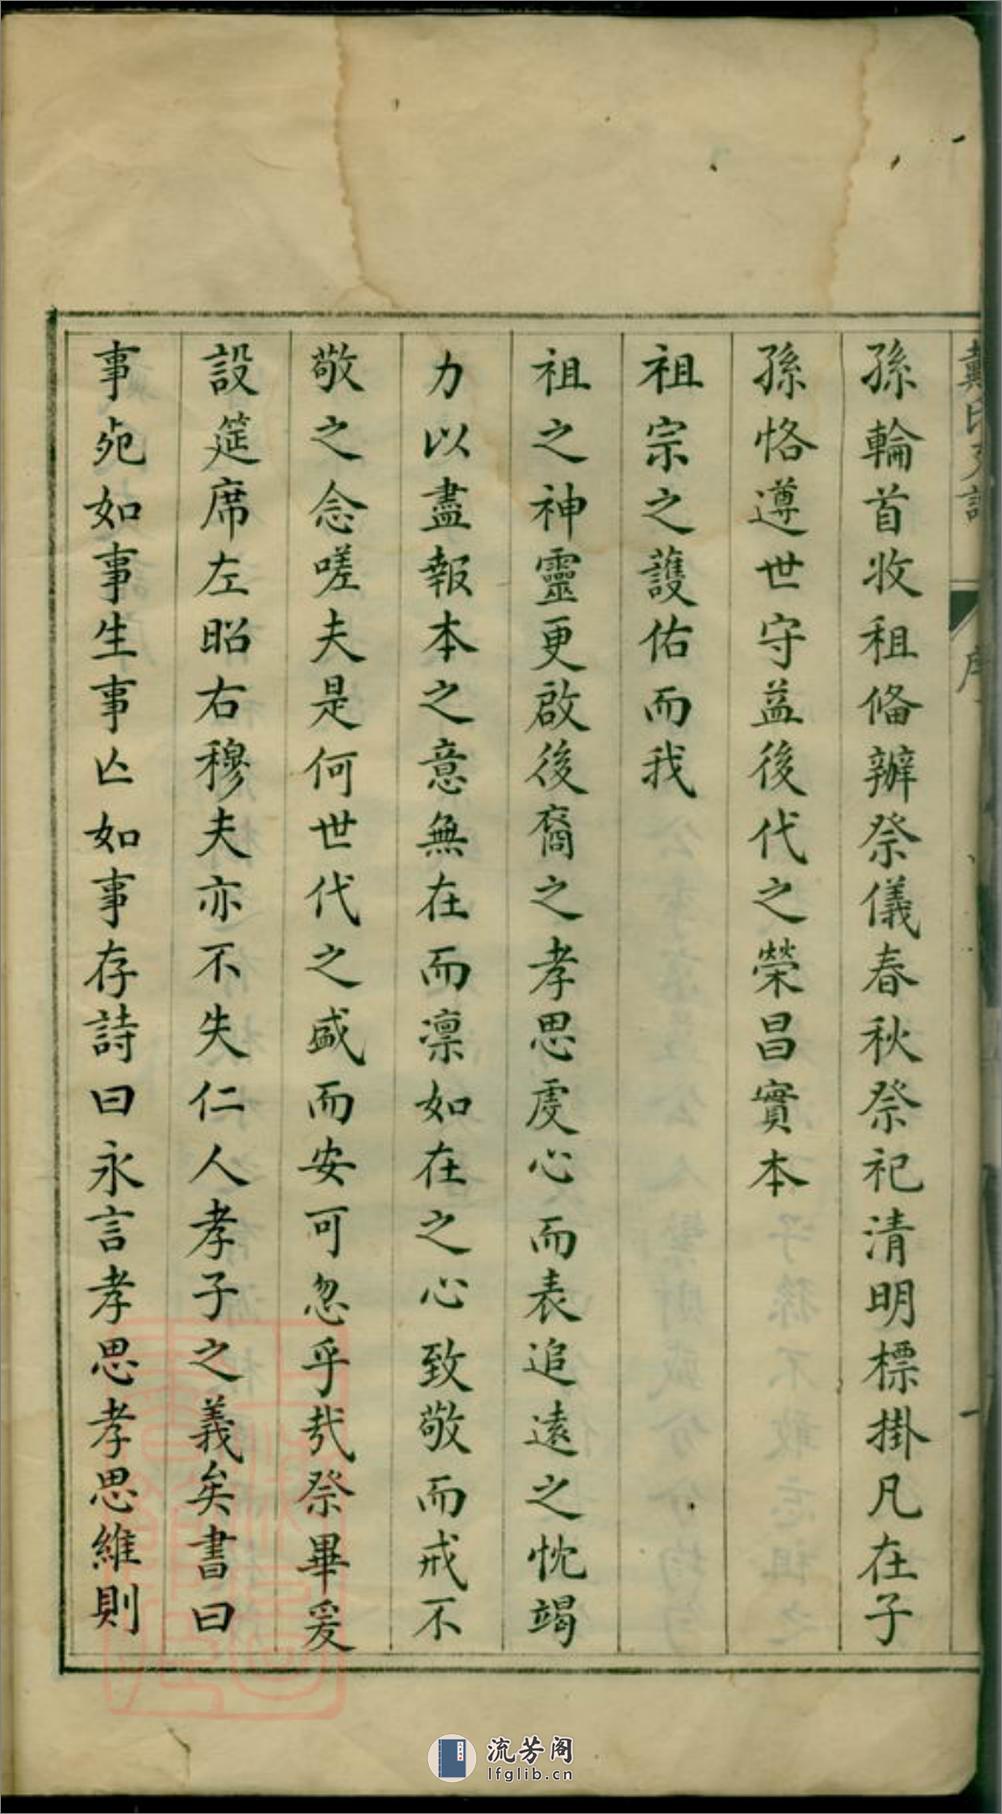 戴氏支譜
序
孫輪首收租俻辦祭儀春秋祭祀清明標掛凡在子
孫恪遵世守益後代之榮昌實本
祖宗之護佑而我
祖之神靈更啟後裔之孝思虔心而表追遠之忱竭
力以盡報本之意無在而凛如在之心致敬而戒不
敬之念嗟夫是何世代之盛而安可忽乎㦲祭畢爰
設筵席左昭右穆夫亦不失仁人孝子之義矣書曰
事死如事生事亾如事存詩曰永言孝思孝思維則
流芳阁
lfglib.cn